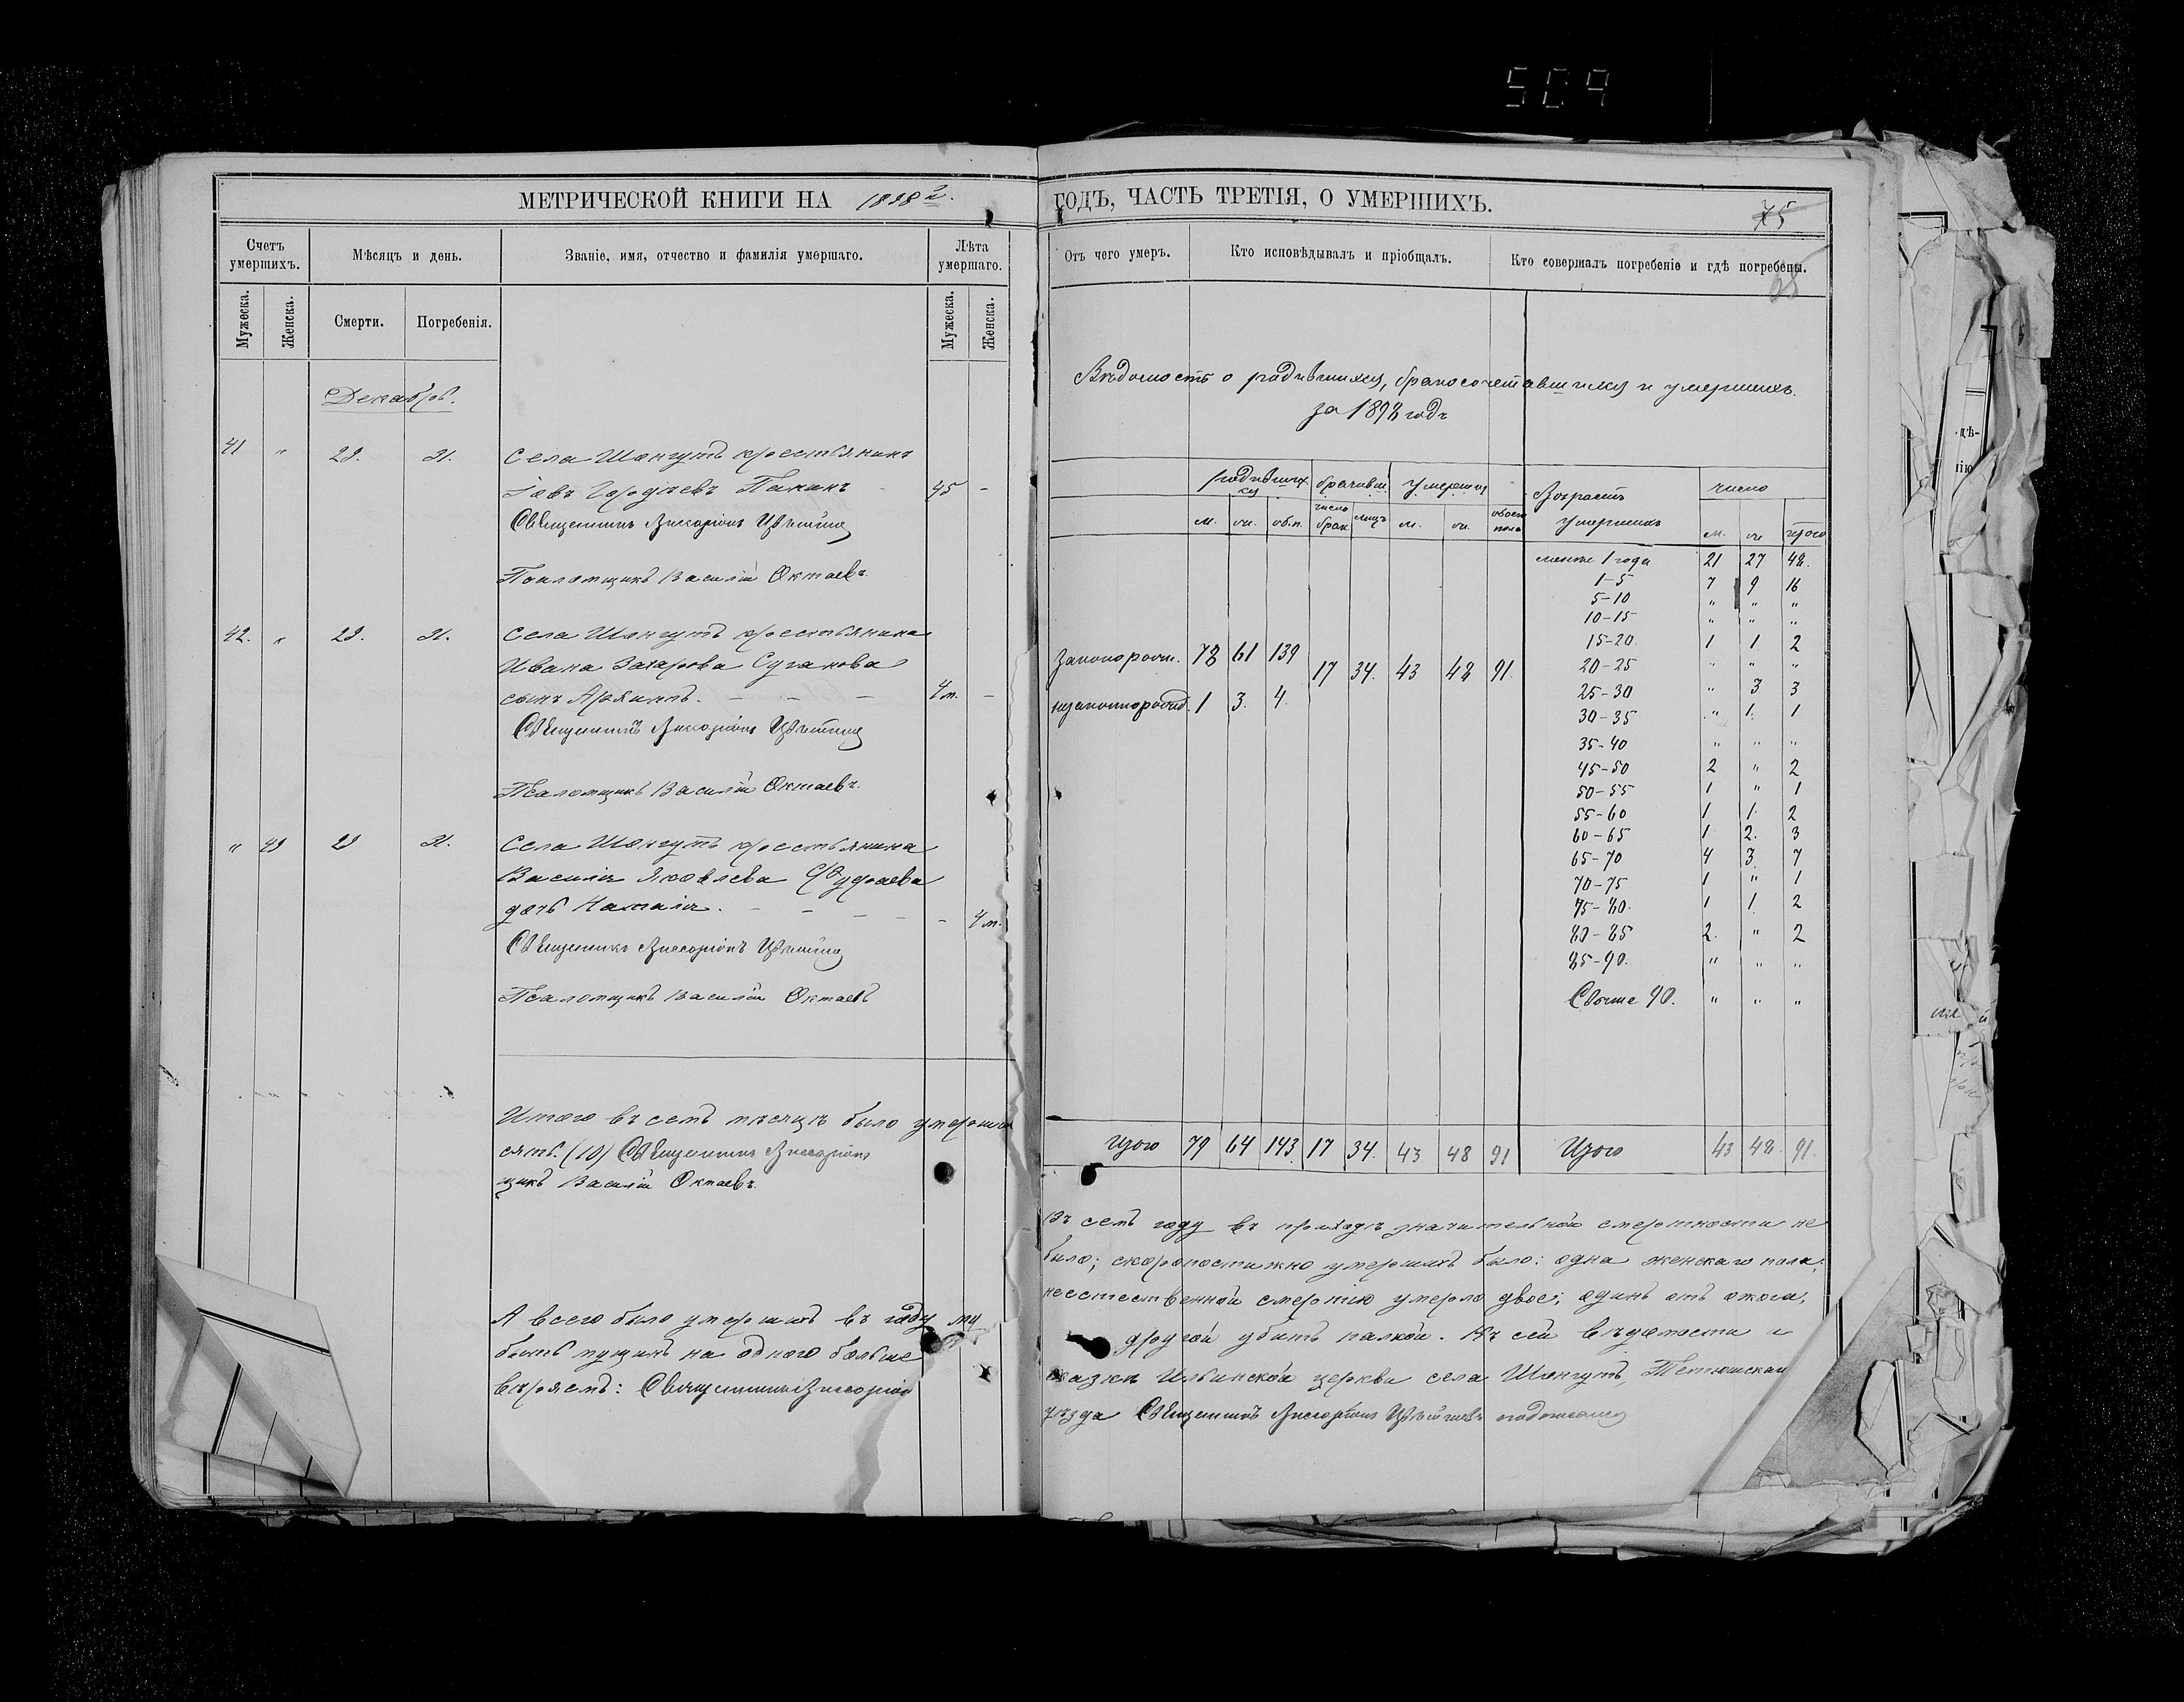 504
МЕТРИЧЕСКОЙ КНИГИ НА 1898 г.
Счетъ умершихъ.
Мѣсяцъ и день.
Званіе, имя, отчество и фамилія умершаго.
Лѣта умершаго.
Мужеска.
Женска.
Смерти.
Погребенія.
Мужеска.
Женска.
Декабрь.
41 " 29. 31. Села Шонгутъ крестьянинъ
Іовъ 45 -
Священникъ Виссаріонъ
Псаломщикъ Василій Октаевъ.
42. " 29. 31. Села Шонгутъ крестьянина
Ивана Захарова Суганова
сынъ 4 м. -
Священникъ Виссаріонъ
Псаломщикъ Василій Октаевъ.
" 49 29 31. Села Шонгутъ крестьянина
Василія Яковлева
дочь Наталія. - 4 м.
Священникъ Виссаріонъ
Псаломщикъ Василій Октаевъ
Итого въ семъ мѣсяцѣ было умерших
сять. (10) Священникъ Виссаріонъ
щикъ Василій Октаевъ.
А всего было умершихъ въ году му
на одного больше
вѣряемъ: Священникъ Виссаріон
ГОДЪ, ЧАСТЬ ТРЕТІЯ, О УМЕРШИХЪ.
75
Отъ чего умеръ.
Кто исповѣдывалъ и пріобщалъ.
Кто совершалъ погребеніе и гдѣ погребены.
Вѣдомость о родившихся, бракосочетавшихся и умершихъ
за 1898 годъ
родившихся умерших Возрастъ число
м. ж. об.п. число брак. лицъ м. ж. обоего пола умершихъ м. ж. итого
менѣе 1 года 21 27 48.
1-5 7 9 16
5-10 " " "
10-15 " " "
15-20 1 1 2
20-25 " " "
25-30 " 3 3
30-35 " 1. 1
35-40 " " "
45-50 2 " 2
50-55 1 " 1
55-60 1 1. 2
60-65 1 2. 3
65-70 4 3. 7
70-75 1 " 1
75-80. 1 1. 2
80-85 2. " 2
85-90. " " "
Свыше 90. " " "
Законорожд. 78 61 139 17 34. 43 48 91.
незаконнорожд. 1 3. 4.
Итого 79 64 143 17 34. 43 48 91 Итого 43 48 91.
Въ семъ году въ приходѣ значительной смертности не
было; скоропостижно умершихъ было: одна женскаго пола;
неестественной смертію умерло двое; одинъ отъ ожога,
другой убитъ палкой. Къ сей вѣдомости
Ильинской церкви села Шонгутъ, Тетюшскаго
уѣзда Священникъ Виссаріонъ